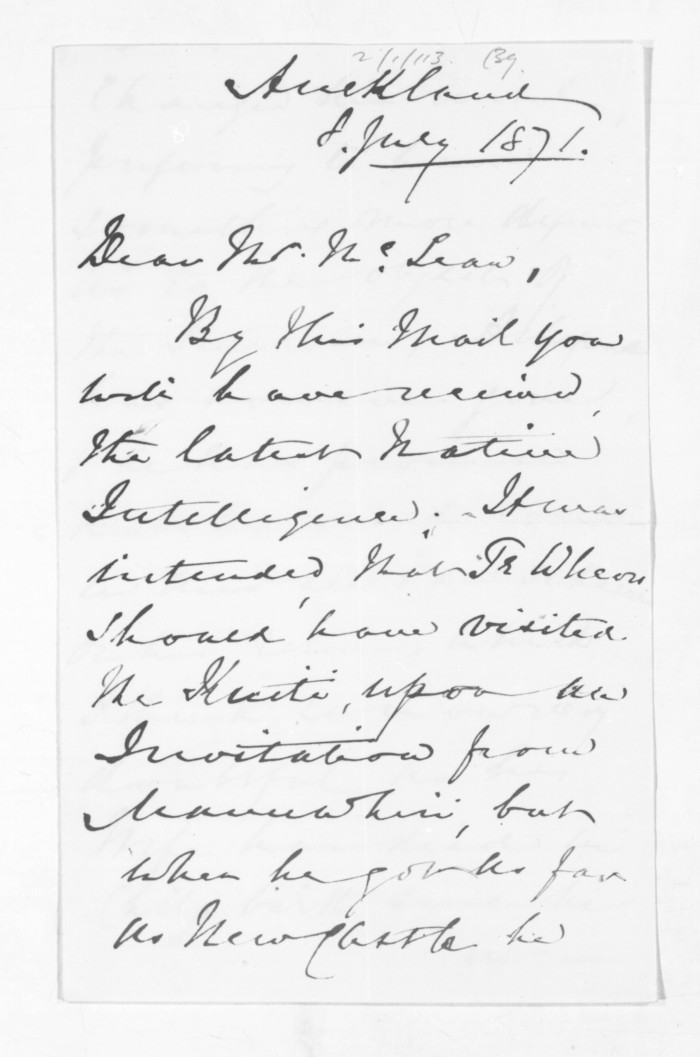 Auckland
8. July 1871.
Dear Mr. McLean,
By this Mail you
will have received
the latest Native
Intelligence. It was
intended, that Te Wheoro
should have visited
the Kuiti, upon an
Invitation from
Manuwhiri, but
when he got as far
as NewCastle he